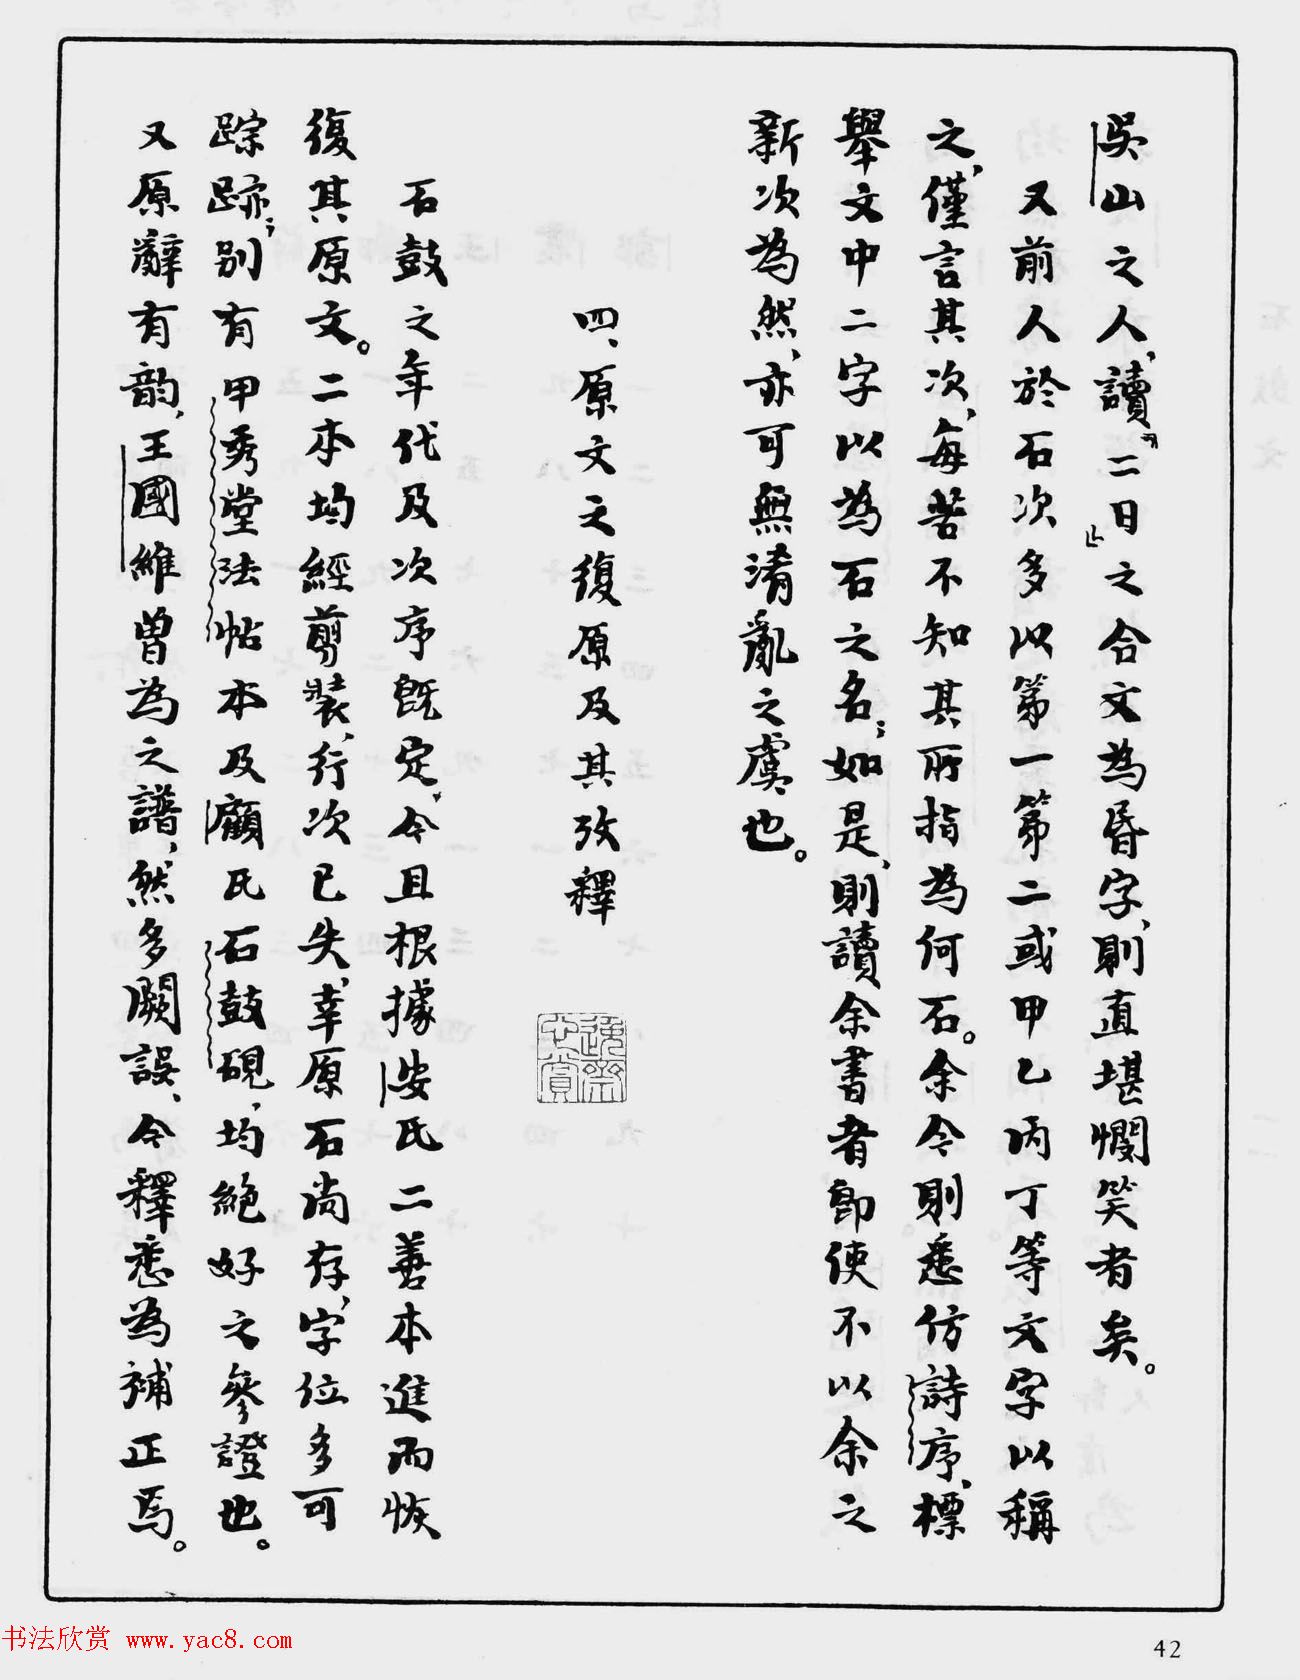 吳山之人，讀「二日」之合文為昏字，則直堪憫笑者矣。
又前人於石次多以第一第二或甲乙丙丁等文字以稱
之，僅言其次，每苦不知其所指為何石。余今則悉仿詩序，標
舉文中二字以為石之名；如是，則讀余書者即使不以余之
新次為然，亦可無淆亂之虞也。
四、原文之復原及其攷釋
石鼓之年代及次序既定，今且根據安氏二善本進而恢
復其原文。二本均經剪裝，行次已失，幸原石尚存，字位多可
踪跡；別有甲秀堂法帖本及顧氏石鼓硯，均絕好之參證也。
又原辭有韵，王國維曾為之譜，然多闕誤，今釋悉為補正焉。
书法欣赏 www.yac8.com
42